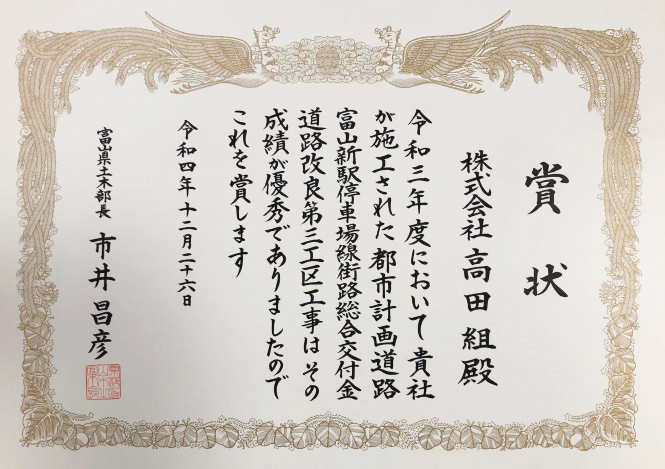 賞状
株式会社 高田組殿
令和三年度において貴社
が施工された都市計画道路
富山新駅停車場線街路総合交付金
道路改良第三工区工事はその
成績が優秀でありましたので
これを賞します
令和四年十二月二十六日
富山県土木部長 市井昌彦